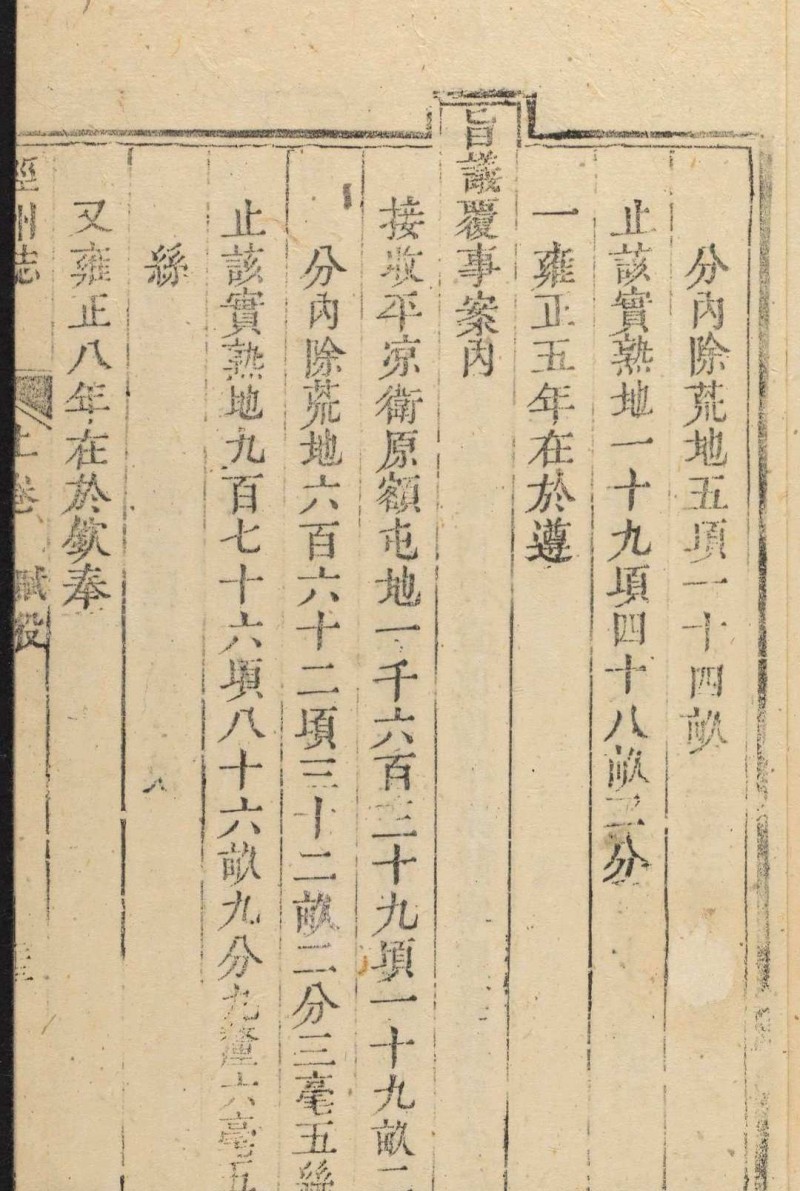 分內除荒地五項一十四畝
止該實熟地一十九項四十八畝三分
一雍正五年在於遵
旨議覆事案內
接收平凉衛原額屯地一千六百三十九項一十九畝二
分內除荒地六百六十二頃三十二畝二分三毫五絲
止該實熟地九百七十六頃八十六畝九分九釐六毫五
絲
又雍正八年在於欽奉
涇州誌 上卷 賦役